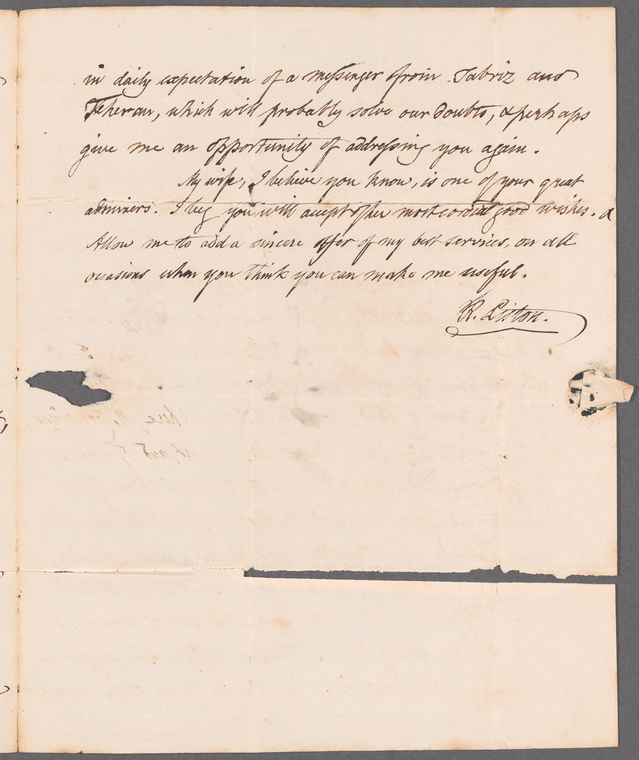 in daily expectation of a messenger from Tabriz and
Teheran, which will probably solve our doubts, & perhaps
give me an opportunity of addressing you again.
My wife, I believe you know, is one of your great
admirers. I beg you will accept of her most cordial good wishes. &
Allow me to add a sincere offer of my best services, on all
occasions when you think you can make me useful.
R. Liston.